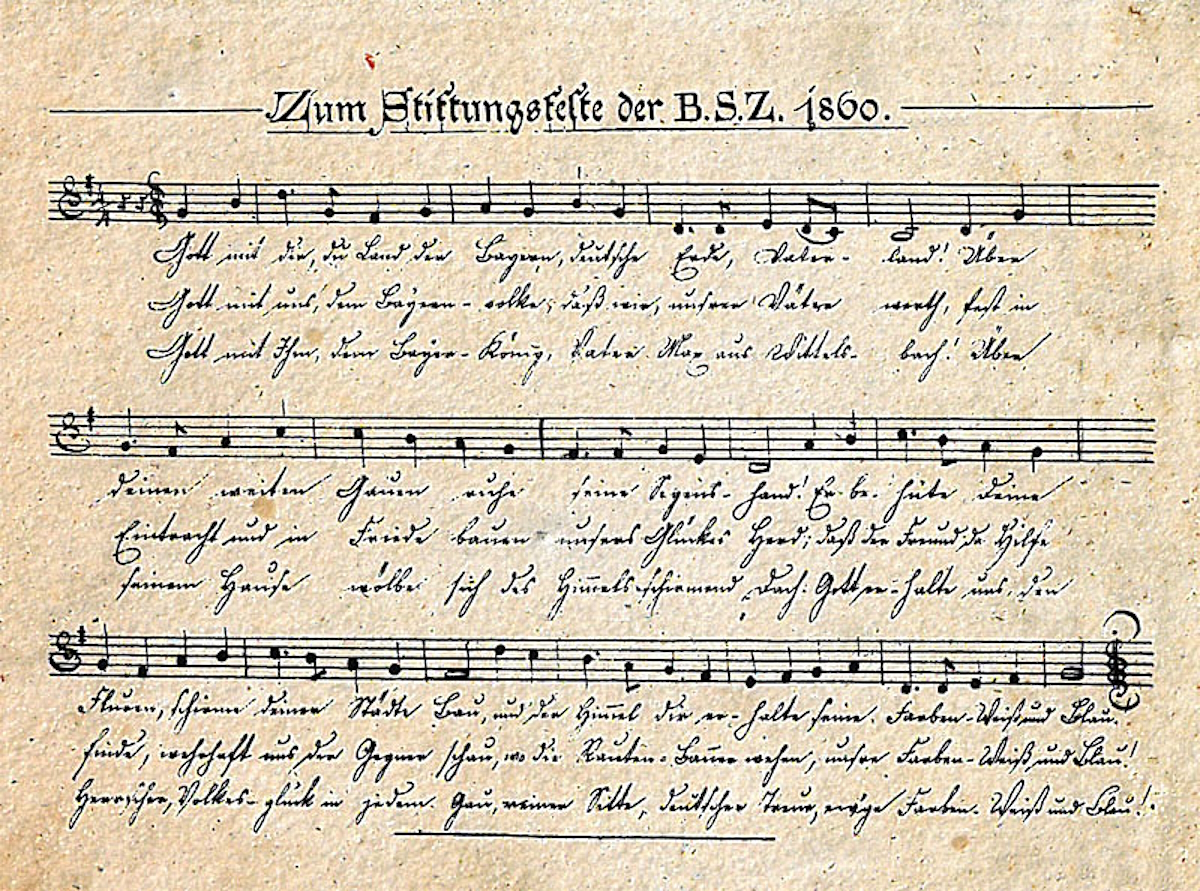 Zum Stiftungsfeste der B.S.Z. 1860.
Gott mit dir, du Land der Bayern, deutsche Erde, Vater- land! Über
Gott mit uns, dem Bayern- volke, daß wir, unsrer Väter werth, fest in
Gott mit Ihm, dem Bayer- König, Vater Max aus Wittels- bach! Über
deinen weiten Gauen ruhe seine Segens- hand! Er be- hüte deine
Eintracht und in Friede bauen unsers Glückes Herd; daß der Freund da Hilfe
seinem Hause wölbe sich des Himmels schirmend Dach. Gott er- halte uns, den
Fluren, schirme deiner Städte Bau, und der Himmel dir er- halte seine Farben- Weiß und Blau.
finde, wehrhaft uns der Gegner schau, wo die Rauten- Banner wehen, unsre Farben- Weiß und Blau!
Herrscher, Volkes- glück in jedem Gau, reiner Sitte, deutscher Treue, ew'ge Farben- Weiß und Blau!